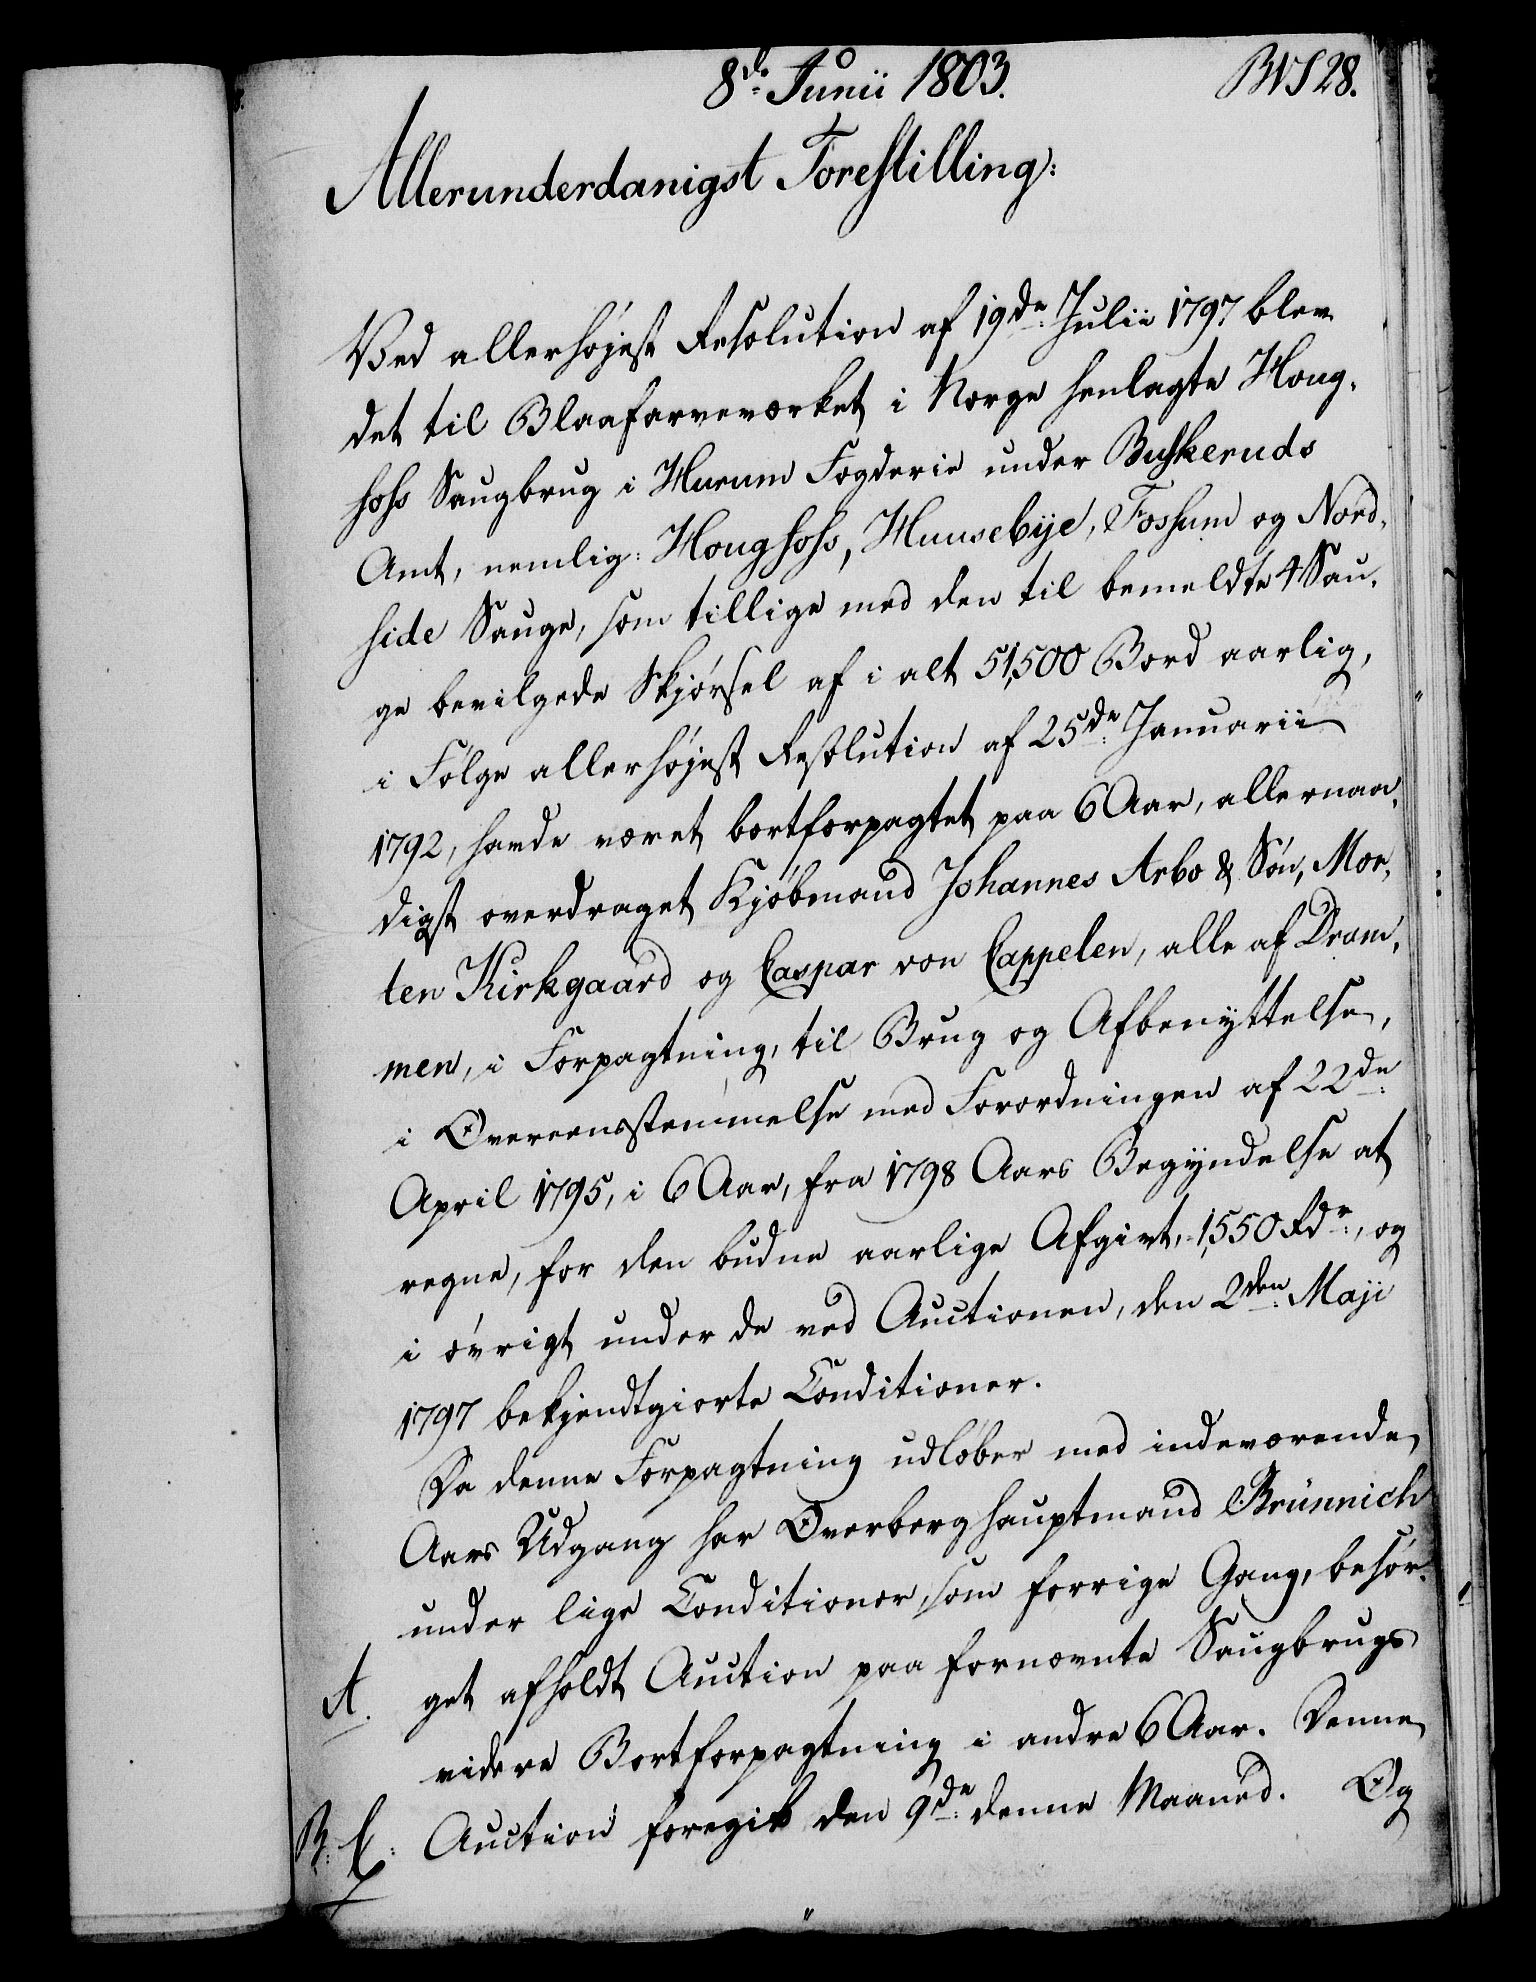 8de Junii 1803.
BVS 28.
Allerunderdanigst Forestilling:
Ved allerhøjest Resolution af 19de Julii 1797 blev
det til Blaafarveværket i Norge henlagte Houg-
foss Saugbrug i Murum Fogderie under Buskeruds
Amt, nemlig: Hougfoss, Huusebÿe, Fossum og Nord-
side Sauge, som tillige med den til bemeldte 4 Sau-
ge bevilgede Skjørsel af i alt 51,500 Bord aarlig,
i Følge allerhøjest Resolution af 25de Januarii
1792, havde været bortforpagtet paa 6 Aar, allernaa-
digst overdraget Kjøbmænd Johannes Arbo & Søn, Mor-
ten Kirkgaard og Caspar von Cappelen, alle af Dram-
men, i Forpagtning, til Brug og Afbenÿttelse,
i Overeensstemmelse med Forordningen af 22de
April 1795, i 6 Aar, fra 1798 Aars Begÿndelse at
regne, for den budne aarlige Afgivt, 1,550 Rdr, og
i øvrigt under de ved Auctionen, den 2den Maji
1797 bekjendtgiorte Conditioner.
Da denne Forpagtning udløber med indeværende
Aars Udgang har Overberghauptmand Brünnich
under lige Conditioner, som forrige Gang, besør-
A. get afholdt Auction paa fornævnte Saugbrugs
videre Bortforpagtning i andre 6 Aar. Denne
Auction foregik den 9de denne Maaned. Og